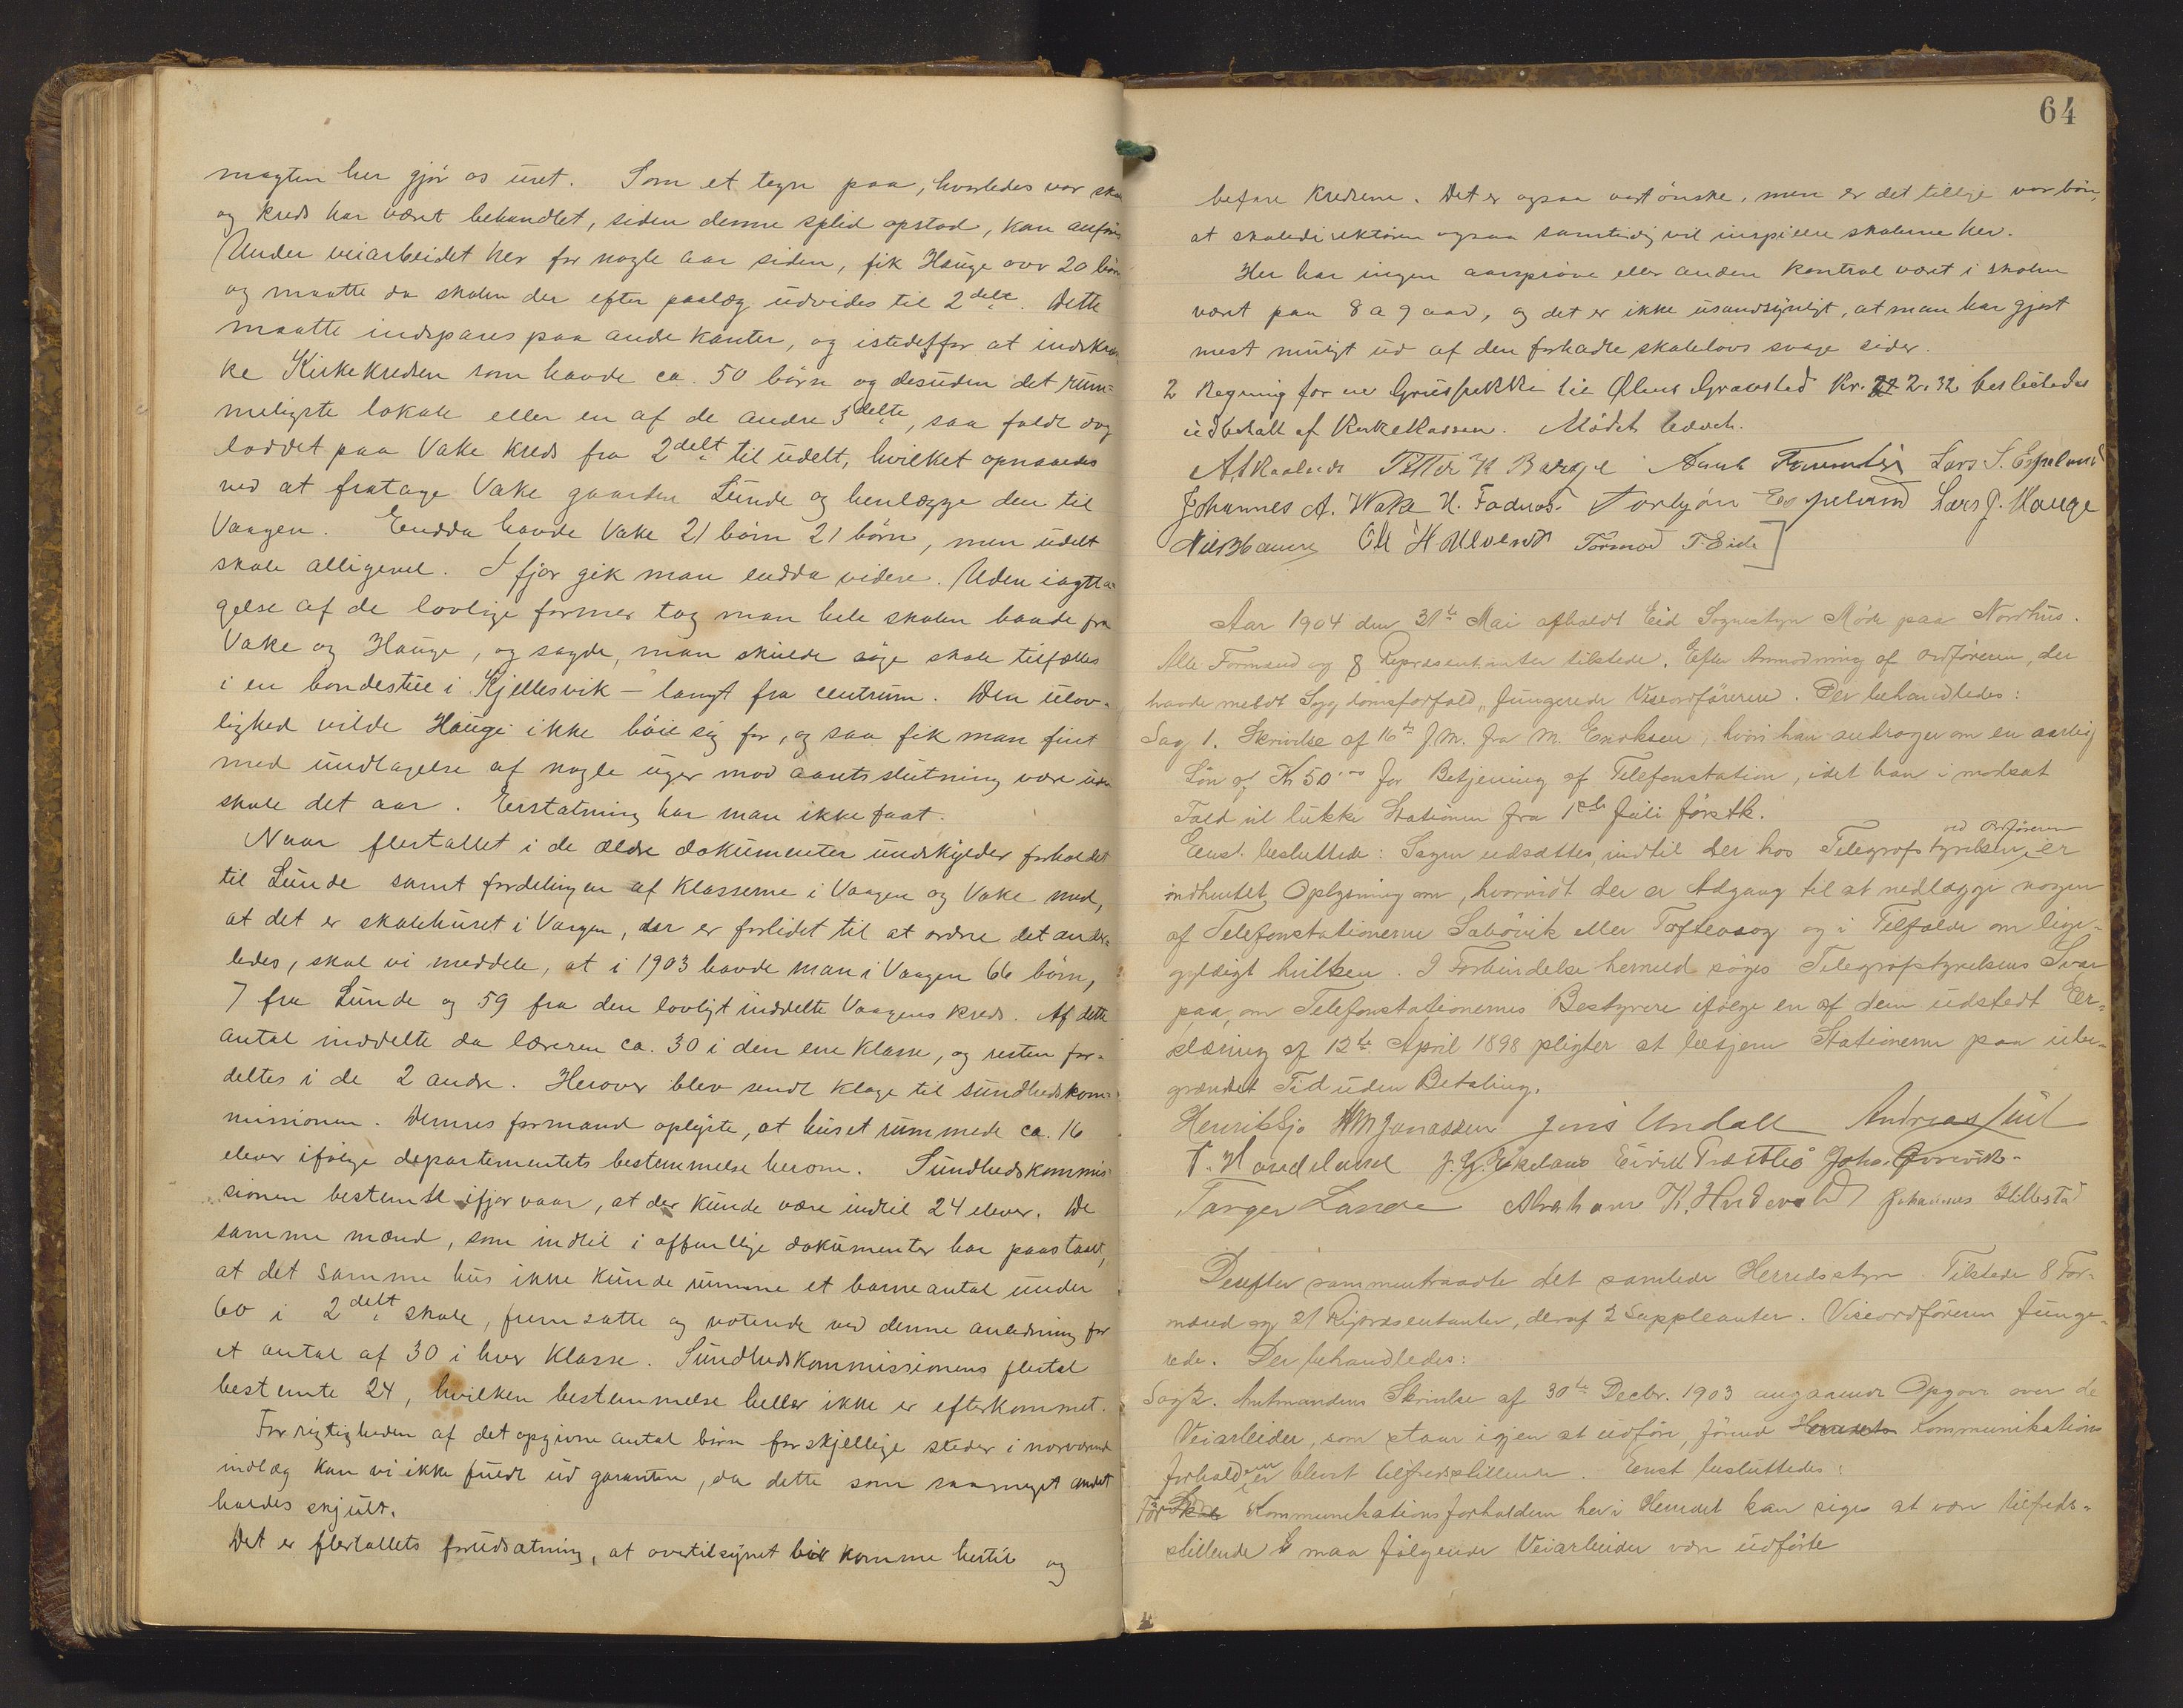 magten her gjør os uret. Som et tegn paa, hvorledes vor sko
og kreds har været behandlet, siden denne splid opstod, kan anføres
Under veiarbeidet her for nogle aar siden, fik Hauge over 20 børn
og maatte da skolen der efter paalæg udvides til 2delt. Dette
maatte indspares paa andre kanter, og istedetfor at indskræn-
ke Kirkekredsen som havde ca. 50 børn og desuden det rum=
meligste lokale eller en af de andre 3delte, saa faldt dog
loddet paa Vake kreds fra 2delt til udelt, hvilket opnaaedes
ved at fratage Vake gaarden Lunde og henlægge den til
Vaagen. Endda havde Vake 21 børn 21 børn, men udelt
skole alligevel. I fjor gik man endda videre. Uden iagtta-
gelse af de lovlige former tog man hele skolen baade fra
Vake og Hauge, og sagde, man skulde søge skole tilfælles
i en bondestue i Kjellesvik - langt fra centrum. Den ulov-
lighed vilde Hauge ikke bøie sig for, og saa fik man fint
med undtagelse af nogle uger mod aarets slutning være uden
skole det aar. Erstatning har man ikke faat.
Naar flertallet i de ældre dokumenter undskylder forholdet
til Lunde samt fordelingen af klasserne i Vaagen og Vake med,
at det er skolehuset i Vaagen, der er forlidet til at ordne det ander-
ledes, skal vi meddele, at i 1903 havde man i Vaagen 66 børn,
7 fra Lunde og 59 fra den lovligt inddelte Vaagens kreds. Af dette
antal inddelte da læreren ca. 30 i den ene klasse, og resten for-
deltes i de 2 andre. Herover blev sendt klage til sundhedskom-
missionen. Dennes formand oplyste, at huset rummede ca. 16
elever ifølge departementets bestemmelse herom. Sundhedskommis-
sionen bestemte ifjor vaar, at der kunde være indtil 24 elever. De
samme mænd, som indtil i offentlige dokumenter har paastaaet,
at det samme hus ikke kunde rumme et barneantal under
60 i 2delt skole, fremsatte og voterede ved denne anledning for
et antal af 30 i hver klasse. Sundhedskommissionens flertal
bestemte 24, hvilken bestemmelse heller ikke er efterkommet.
For rigtigheden af det opgivne antal børn forskjellige steder i nærværende
indlæg kan vi ikke fuldt ud garantere, da dette som saameget andet
holdes skjult.
Det er flertallets forudsætning, at overtilsynet vil komme hertil og
64
befare kredsene. Det er ogsaa vort ønske, men er det tillige vor bøn,
at skoledirektøren ogsaa samtidig vil inspisere skolerne her.
Her har ingen aarsprøve eller anden kontrol været i skolen
været paa 8 a 9 aar, og det er ikke usandsynligt, at man har gjort
mest muligt ud af den forhadte skolelovs svage sider.
2 Regning for en Gruspukke til Olens Gravsted Kr. 2.32 besluttedes
udbetalt af Kirkekassen. Mødet hævet.
Petter K Barge Lars S. Espeland
Johannes A. Wake N. Fodnes. Torbjøn Espeland Lars J. Hauge
Ole H Ulvend Tormod T. Eide
Aar 1904 den 31te Mai afholdt Eid Sognestyre Møde paa Nordhus.
Alle Formænd og 8 Repræsentanter tilstede. Efter Anmodning af ordføreren, der
havde meldt Sygdomsforfald, fungerede Viseordføreren. Der behandledes:
Sag 1. Skrivelse af 16de f.M. fra M. Eriksen, hvori han andrager om en aarlig
Løn af Kr 50.00 for Betjening af Telefonstation, idet han i modsat
Fald vil lukke Stationen fra 1ste Juli førstk.
Enst. besluttede: Sagen udsættes indtil der hos Telegrafstyrelsen ved Ordføreren er
indhentet Oplysning om, hvorvidt der er Adgang til at nedlægge nogen
af Telefonstationerne Sæbøvik eller Toftevaag og i Tilfælde om lige-
gyldigt hvilken. I Forbindelse hermed søges Telegrafstyrelsens Svar
paa, om Telefonstationernes Bestyrere ifølge en af dem udstedt Er-
klæring af 12te April 1898 pligter at betjene Stationerne paa ube-
grændset Tid uden Betaling.
Henrik Sjo Jonassen Jens Undall Andreas
Torger Lande Abraham K. Johannes Hillestad
Derefter sammentraadte det samlede Herredsstyre. Tilstede 8 For-
mænd og 21 Repræsentanter, deraf 2 Suppleanter. Viseordføreren funge-
rede. Der behandledes:
Sag 2. Amtmandens Skrivelse af 30te Decbr. 1903 angaaende Opgave over de
Veiarbeider, som staar igjen at udføre, førend Kommunikations
forholdene er blevet tilfredsstillende. Enst besluttedes:
Før Kommunikationsforholdene her i Herredet kan siges at være tilfreds-
stillende maa følgende Veiarbeider være udførte